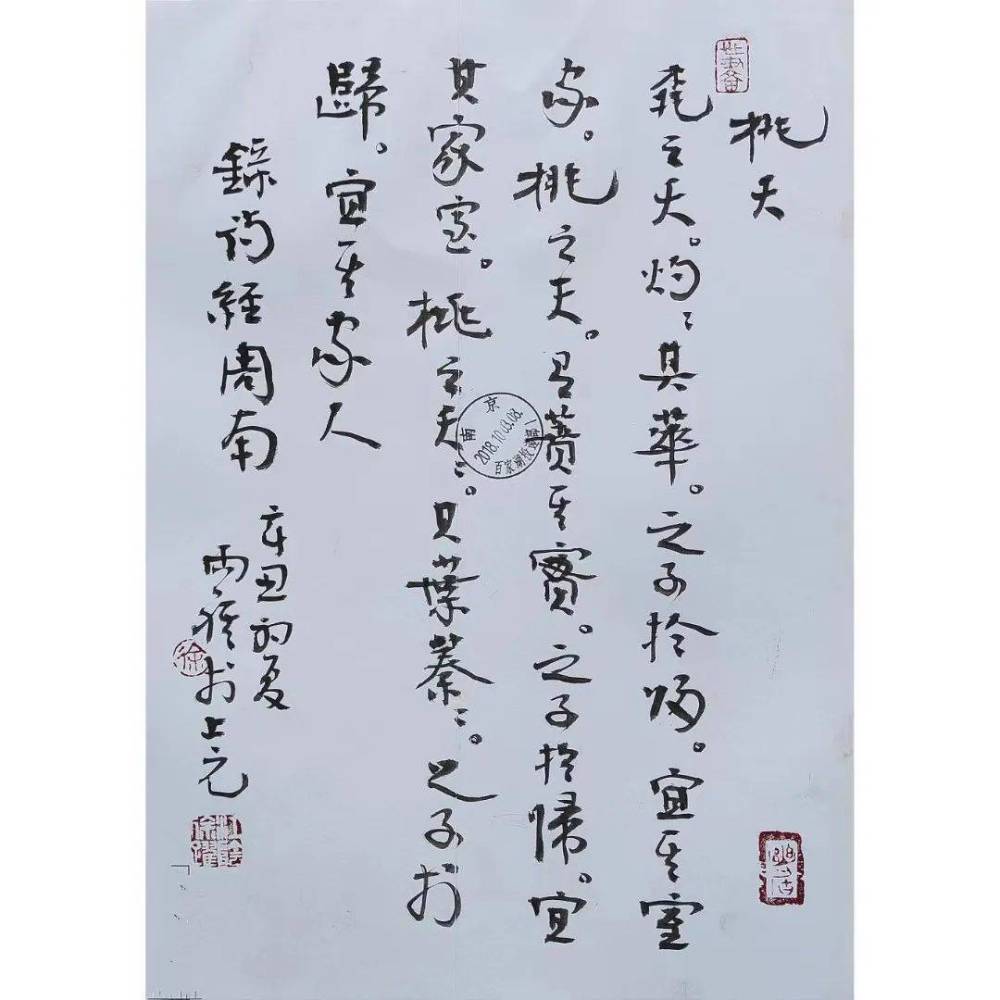 桃夭
桃之夭。灼〻其華。之子於歸。宜其室
家。桃之夭。有蕡其實。之子於歸。宜
其家室。桃之夭〻。其葉蓁〻。之子於
歸。宜其家人
錄詩經周南
辛丑初夏
雨於上元
徐
南京
2018.10
百家湖